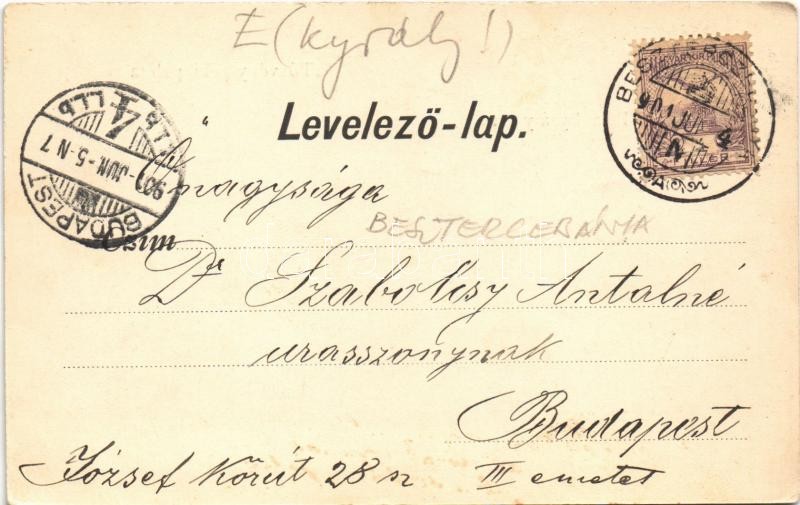 E (Kyrály!)
Levelező-lap.
Őnagysága
BESZTERCEBÁNYA
Czim
Dr Szabolcsy Antalné
urasszonynak
Budapest
József Körút 28 sz III emelet
BUDAPEST
901 JUN - 5 - N 7
BESZTERCZE
901 JUN 4
MAGYAR KIR. POSTA